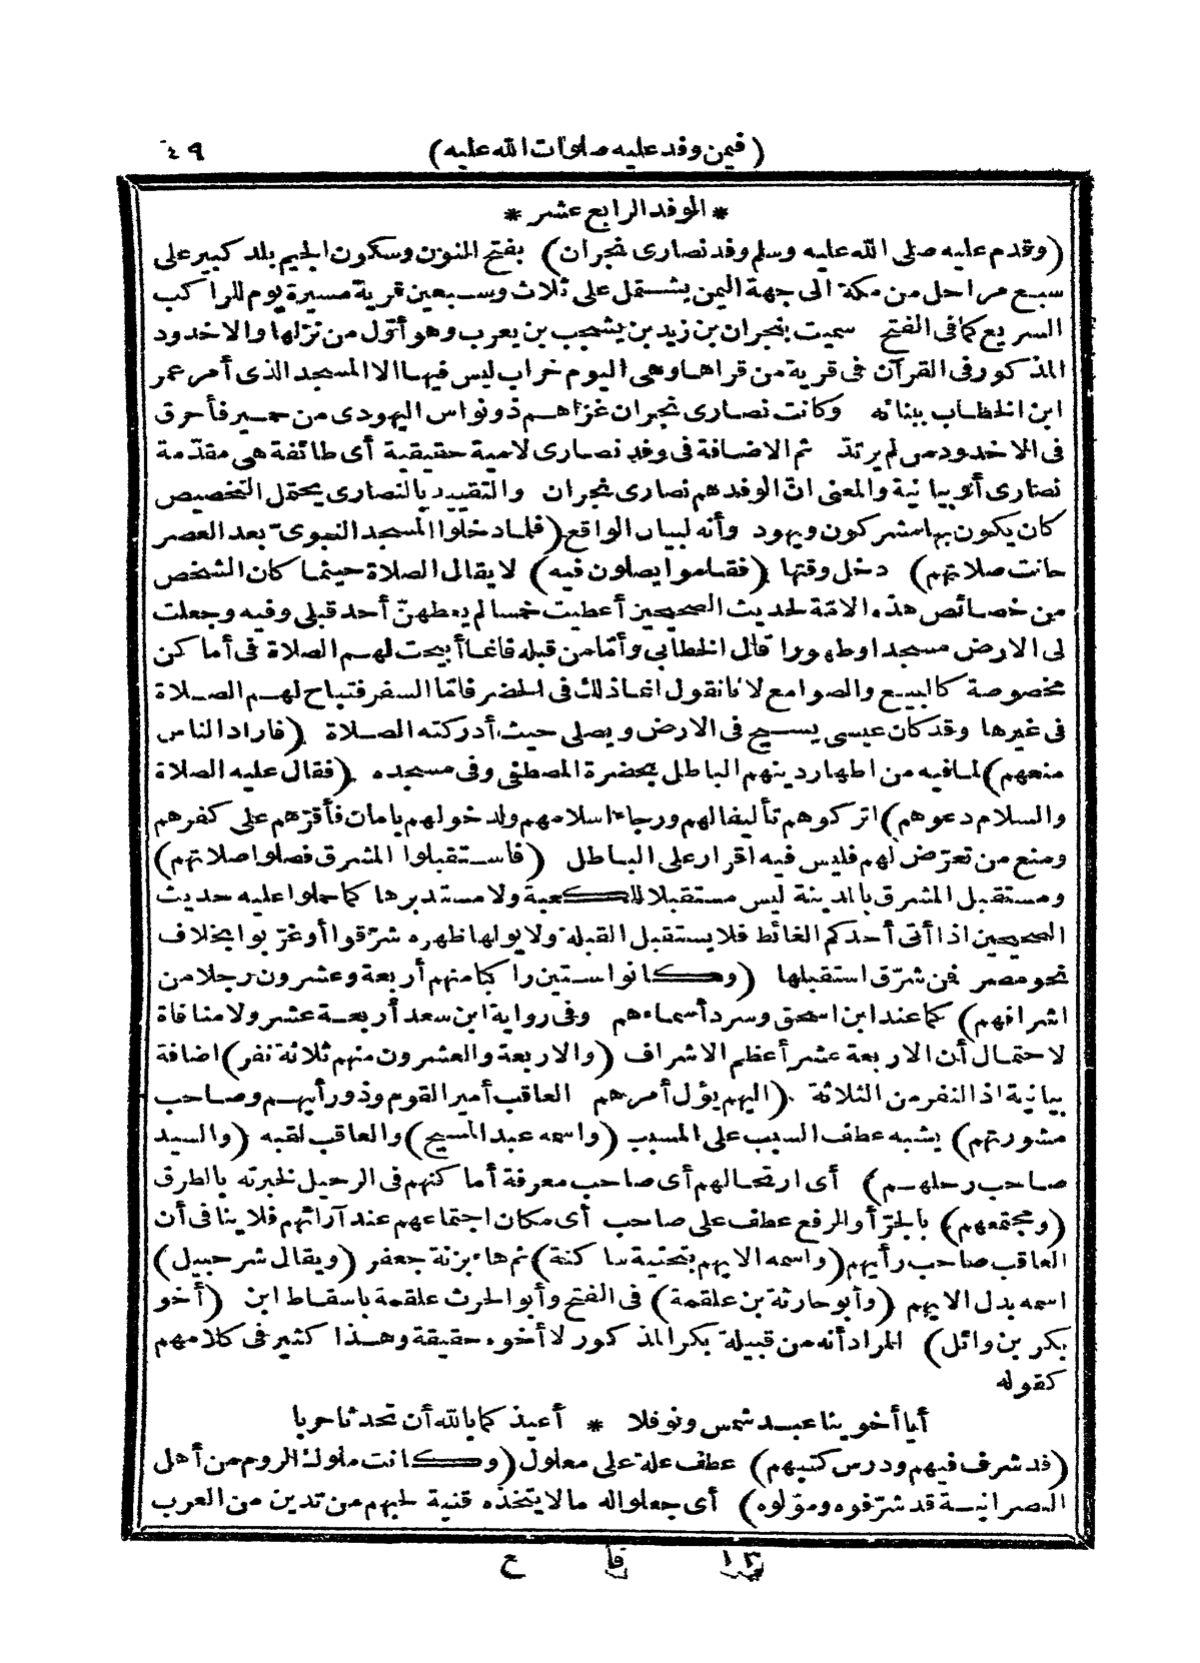 (فيمن وفد عليه صلوات الله عليه) ٤٩
* الوفد الرابع عشر *
(وقدم عليه صلى الله عليه وسلم وفد نصارى نجران) بفتح النون وسكون الجيم بلد كبير على
سبع مراحل من مكة الى جهة اليمن يشتمل على ثلاث وسبعين قرية مسيرة يوم للراكب
السريع كما فى الفتح سميت بنجران بن زيد بن يشجب بن يعرب وهو أول من نزلها والاخدود
المذكور فى القرآن فى قرية من قراها وهى اليوم خراب ليس فيها الا المسجد الذى أمر عمر
ابن الخطاب ببنائه وكانت نصارى نجران غزاهم ذو نواس اليهودى من حمير فأحرق
فى الاخدود من لم يرتد ثم الاضافة فى وفد نصارى لامية حقيقية أى طائفة هى مقدّمة
نصارى أو بيانية والمعنى انّ الوفد هم نصارى نجران والتقييد بالنصارى يحتمل التخصيص
كان يكون بها مشركون ويهود وأنه لبيان الواقع (فلما دخلوا المسجد النبوىّ بعد العصر
حانت صلاتهم) دخل وقتها (فقاموا يصلون فيه) لا يقال الصلاة حيثما كان الشخص
من خصائص هذه الامّة لحديث الصحيحين أعطيت خمسا لم يعطهنّ أحد قبلى وفيه وجعلت
لى الارض مسجدا وطهورا قال الخطابى وأمّا من قبله فانما أبيحت لهم الصلاة فى أماكن
مخصوصة كالبيع والصوامع لانا نقول انما ذلك فى الحضر فامّا السفر فتباح لهم الصلاة
فى غيرها وقد كان عيسى يسيح فى الارض ويصلى حيث أدركته الصلاة (فاراد الناس
منعهم) لما فيه من اظهار دينهم الباطل بحضرة المصطفى وفى مسجده (فقال عليه الصلاة
والسلام دعوهم) اتركوهم تأليفا لهم ورجاء اسلامهم ولدخولهم بامان فأقرّهم على كفرهم
ومنع من تعرّض لهم فليس فيه اقرار على الباطل (فاستقبلوا المشرق فصلوا صلاتهم)
ومستقبل المشرق بالمدينة ليس مستقبلا للكعبة ولا مستدبرها كما حملوا عليه حديث
الصحيحين اذا أتى أحدكم الغائط فلا يستقبل القبلة ولا يولها ظهره شرّقوا أو غرّبوا بخلاف
نحو مصر فمن شرّق استقبلها (وكانوا ستين راكبا منهم أربعة وعشرون رجلا من
اشرافهم) كما عند ابن اسحق وسرد أسماءهم وفى رواية ابن سعد أربعة عشر ولا منافاة
لاحتمال أن الاربعة عشر أعظم الاشراف (والاربعة والعشرون منهم ثلاثة نفر) اضافة
بيانية اذ النفر من الثلاثة (اليهم يؤل أمرهم العاقب أمير القوم وذو رأيهم وصاحب
مشورتهم) يشبه عطف السبب على المسبب (واسمه عبد المسيح) والعاقب لقبه (والسيد
صاحب رحلهم) أى ارتحالهم أى صاحب معرفة أماكنهم فى الرحيل لخبرته بالطرق
(ومجتمعهم) بالجرّ أو الرفع عطف على صاحب أى مكان اجتماعهم عند آرائهم فلا ينافى أن
العاقب صاحب رأيهم (واسمه الايهم بتحتية ساكنة) ثم هاء بزنة جعفر (ويقال شرحبيل)
اسمه بدل الايهم (وأبو حارثة بن علقمة) فى الفتح وأبو الحرث علقمة باسقاط ابن (أخو
بكر بن وائل) المراد أنه من قبيلة بكر المذكور لا أخوه حقيقة وهذا كثير فى كلامهم
كقوله
أيا أخوينا عبد شمس ونوفلا * أعيذكما بالله أن تحدثا حربا
(قد شرف فيهم ودرس كتبهم) عطف علة على معلول (وكانت ملوك الروم من أهل
النصرانية قد شرّفوه وموّلوه) أى جعلوا له مالا يتخذه قنية لحبهم من تدين من العرب
١٣ قا ع